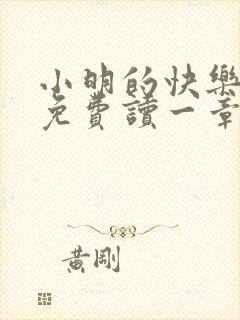 小明的快樂
免費讀一章
黃剛